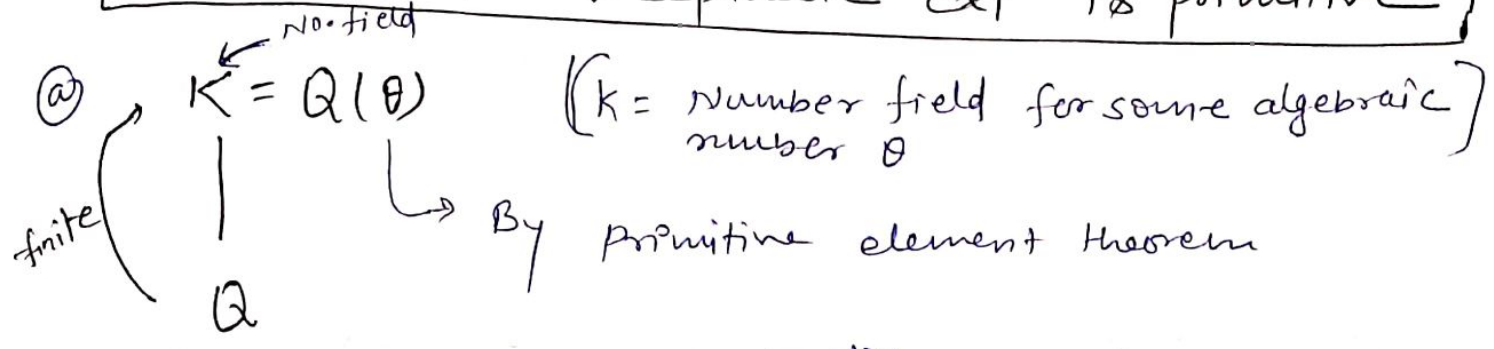 No. field
@ K = Q(θ) [K = Number field for some algebraic
number θ]
finite
By primitive element theorem
Q